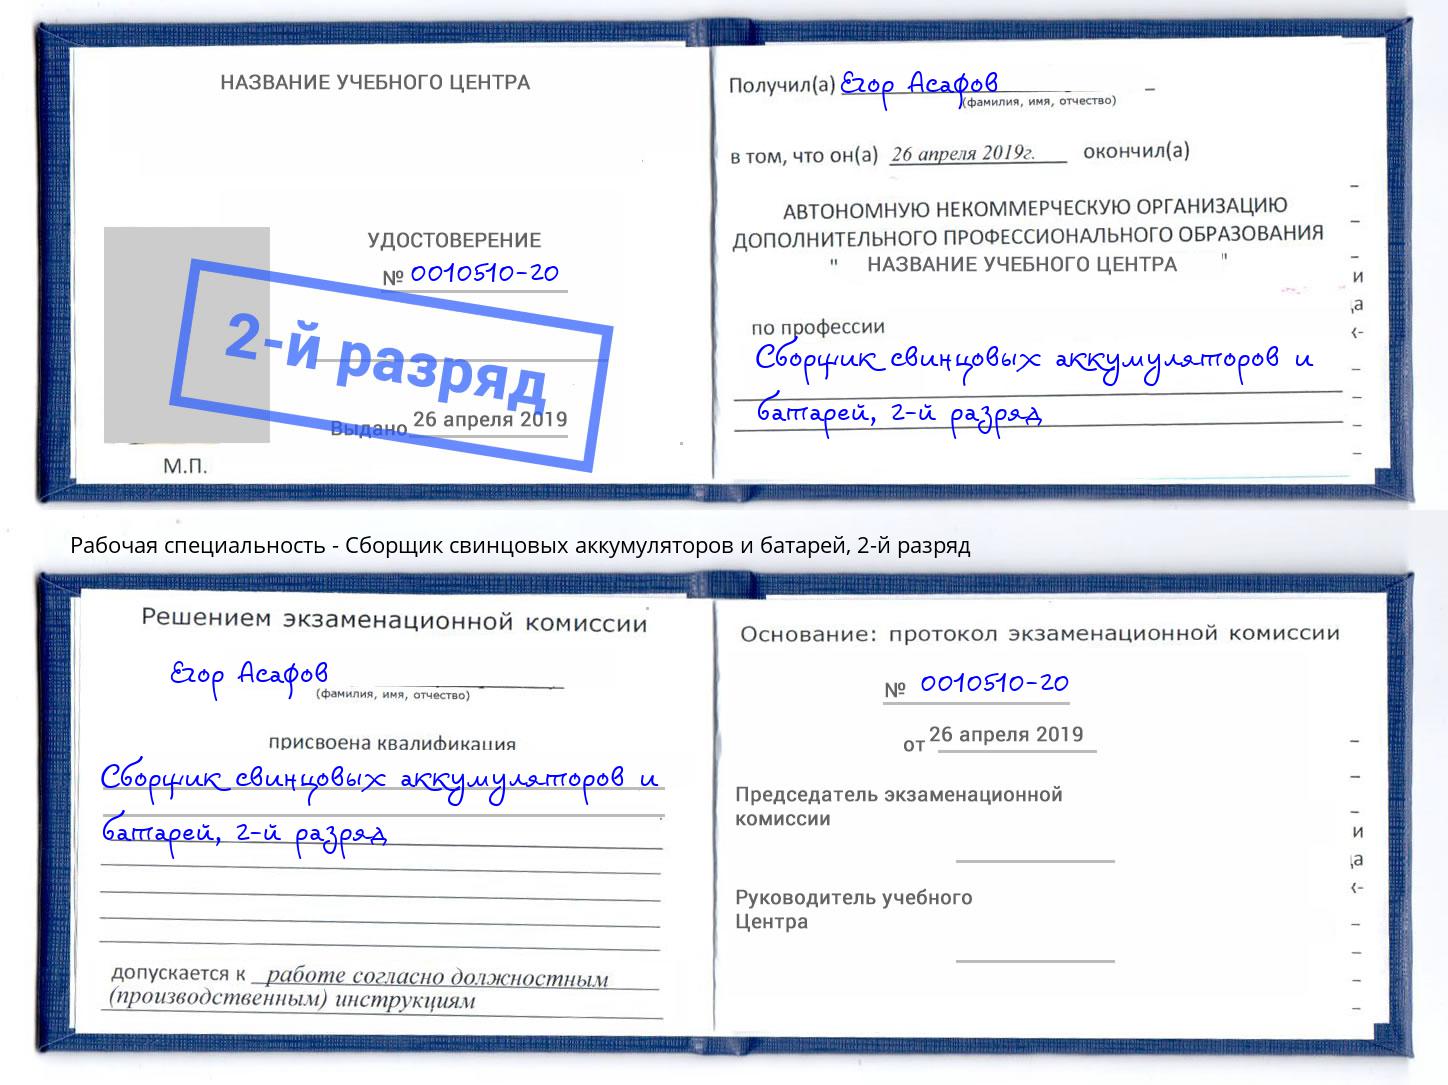 НАЗВАНИЕ УЧЕБНОГО ЦЕНТРА
УДОСТОВЕРЕНИЕ
№ 0010510-20
2-й разряд
Выдано 26 апреля 2019
М.П.
Получил(а) Егор Асафов
(фамилия, имя, отчество)
в том, что он(а) 26 апреля 2019г. окончил(а)
АВТОНОМНУЮ НЕКОММЕРЧЕСКУЮ ОРГАНИЗАЦИЮ
ДОПОЛНИТЕЛЬНОГО ПРОФЕССИОНАЛЬНОГО ОБРАЗОВАНИЯ
" НАЗВАНИЕ УЧЕБНОГО ЦЕНТРА "
по профессии
Сборщик свинцовых аккумуляторов и
батарей, 2-й разряд
Рабочая специальность - Сборщик свинцовых аккумуляторов и батарей, 2-й разряд
Решением экзаменационной комиссии
Егор Асафов
(фамилия, имя, отчество)
присвоена квалификация
Сборщик свинцовых аккумуляторов и
батарей, 2-й разряд
допускается к работе согласно должностным
(производственным) инструкциям
Основание: протокол экзаменационной комиссии
№ 0010510-20
от 26 апреля 2019
Председатель экзаменационной
комиссии
Руководитель учебного
Центра